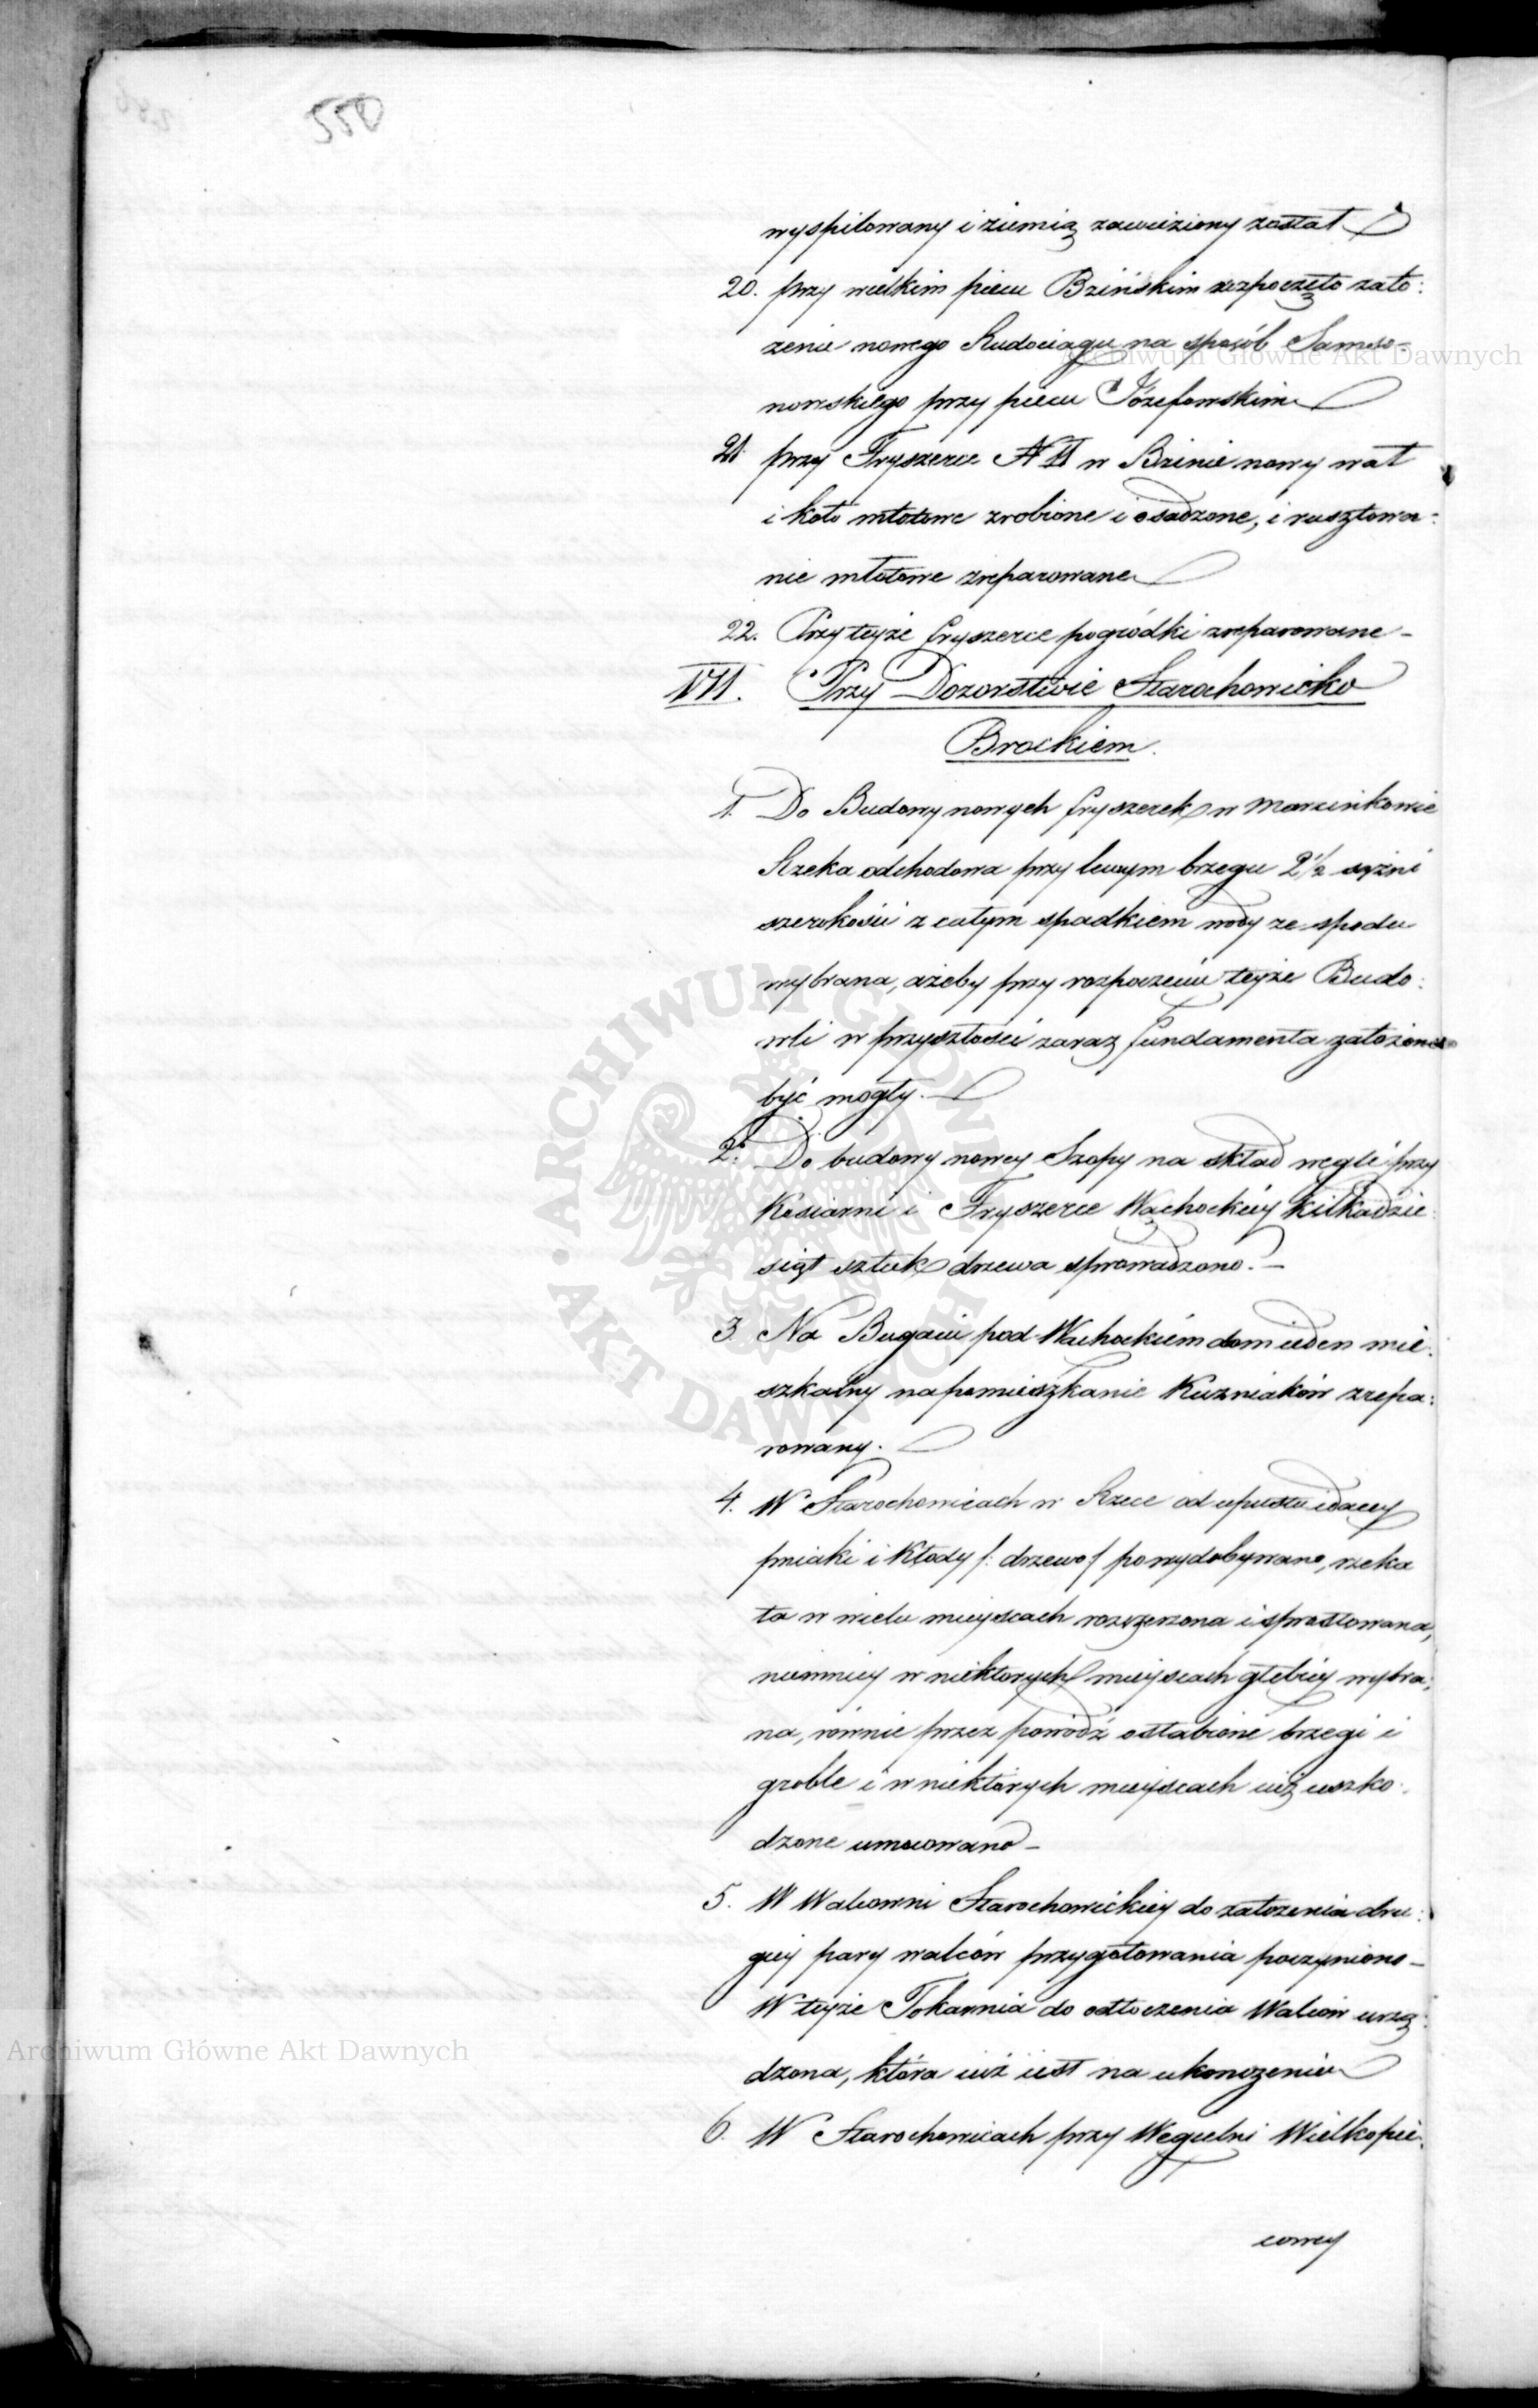 550
wyspilowany i ziemią zawieziony został
20. przy wielkim piecu Bzińskim rozpoczęto zało:
żenie nowego Rudociągu na sposób Samso-
nowskiego przy piecu Józefowskim
21 przy Fryszerce N II w Bzinie nowy wał
i koło młotowe zrobione i osadzone, i rusztowa:
nie młotowe zreparowane
22. Przy teyże fryszerce pogródki zreparowane -
VII. Przy Dozorstwie Starachowicko
Brockiem.
1. Do Budowy nowych fryszerek w Marcinkowie
Rzeka odchodowa przy lewym brzegu 2 1/2 sążni
szerokości z całym spadkiem wody ze spodu
wybrana, ażeby przy rozpoczęciu teyże Budo:
wli w przyszłości zaraz fundamenta założone
być mogły. -
2. Do budowy nowey Szopy na skład węgli przy
Kosiarni i Fryszerce Wąchockiey kilkadzie:
siąt sztuk drzewa sprowadzono. -
3. Na Bugaiu pod Wąchockiem dom ieden mie:
szkalny na pomieszkanie Kuzniaków zrepa:
rowany.
4. W Starochowicach w Rzece od upustu idącey
pniaki i kłody /: drzewo / powydobywano, rzeka
ta w wielu mieyscach rozszerzona i sprostowana,
niemniey w niektorych mieyscach głębiey wybra:
na, równie przez powódź osłabione brzegi i
groble i w niektórych mieyscach iuż uszko:
dzone umocowano -
5. W Walcowni Starochowickiey do założenia dru:
giey pary walców przygotowania poczyniono -
W teyże Tokarnia do odtoczenia Walców urzą:
dzona, która iuż iest na ukończeniu
6. W Starochowicach przy Węgielni Wielkopie:
cowey
Archiwum Główne Akt Dawnych
ARCHIWUM GŁÓWNE AKT DAWNYCH
Archiwum Główne Akt Dawnych